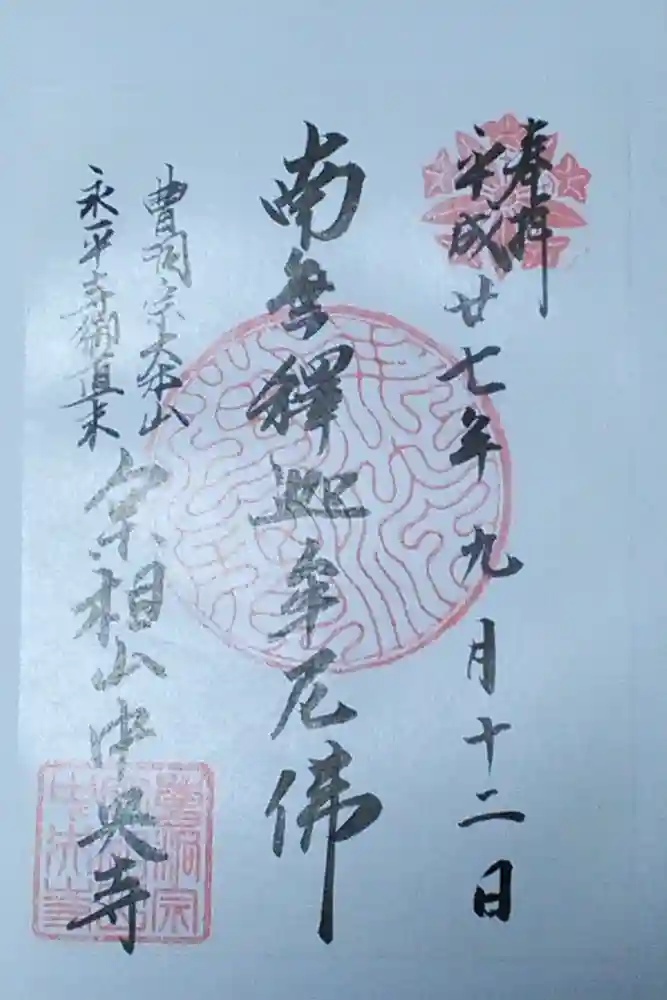 奉拝
平成廿七年九月十二日
南無釋迦牟尼佛
曹洞宗大本山
永平寺御直末
宗相山中央寺